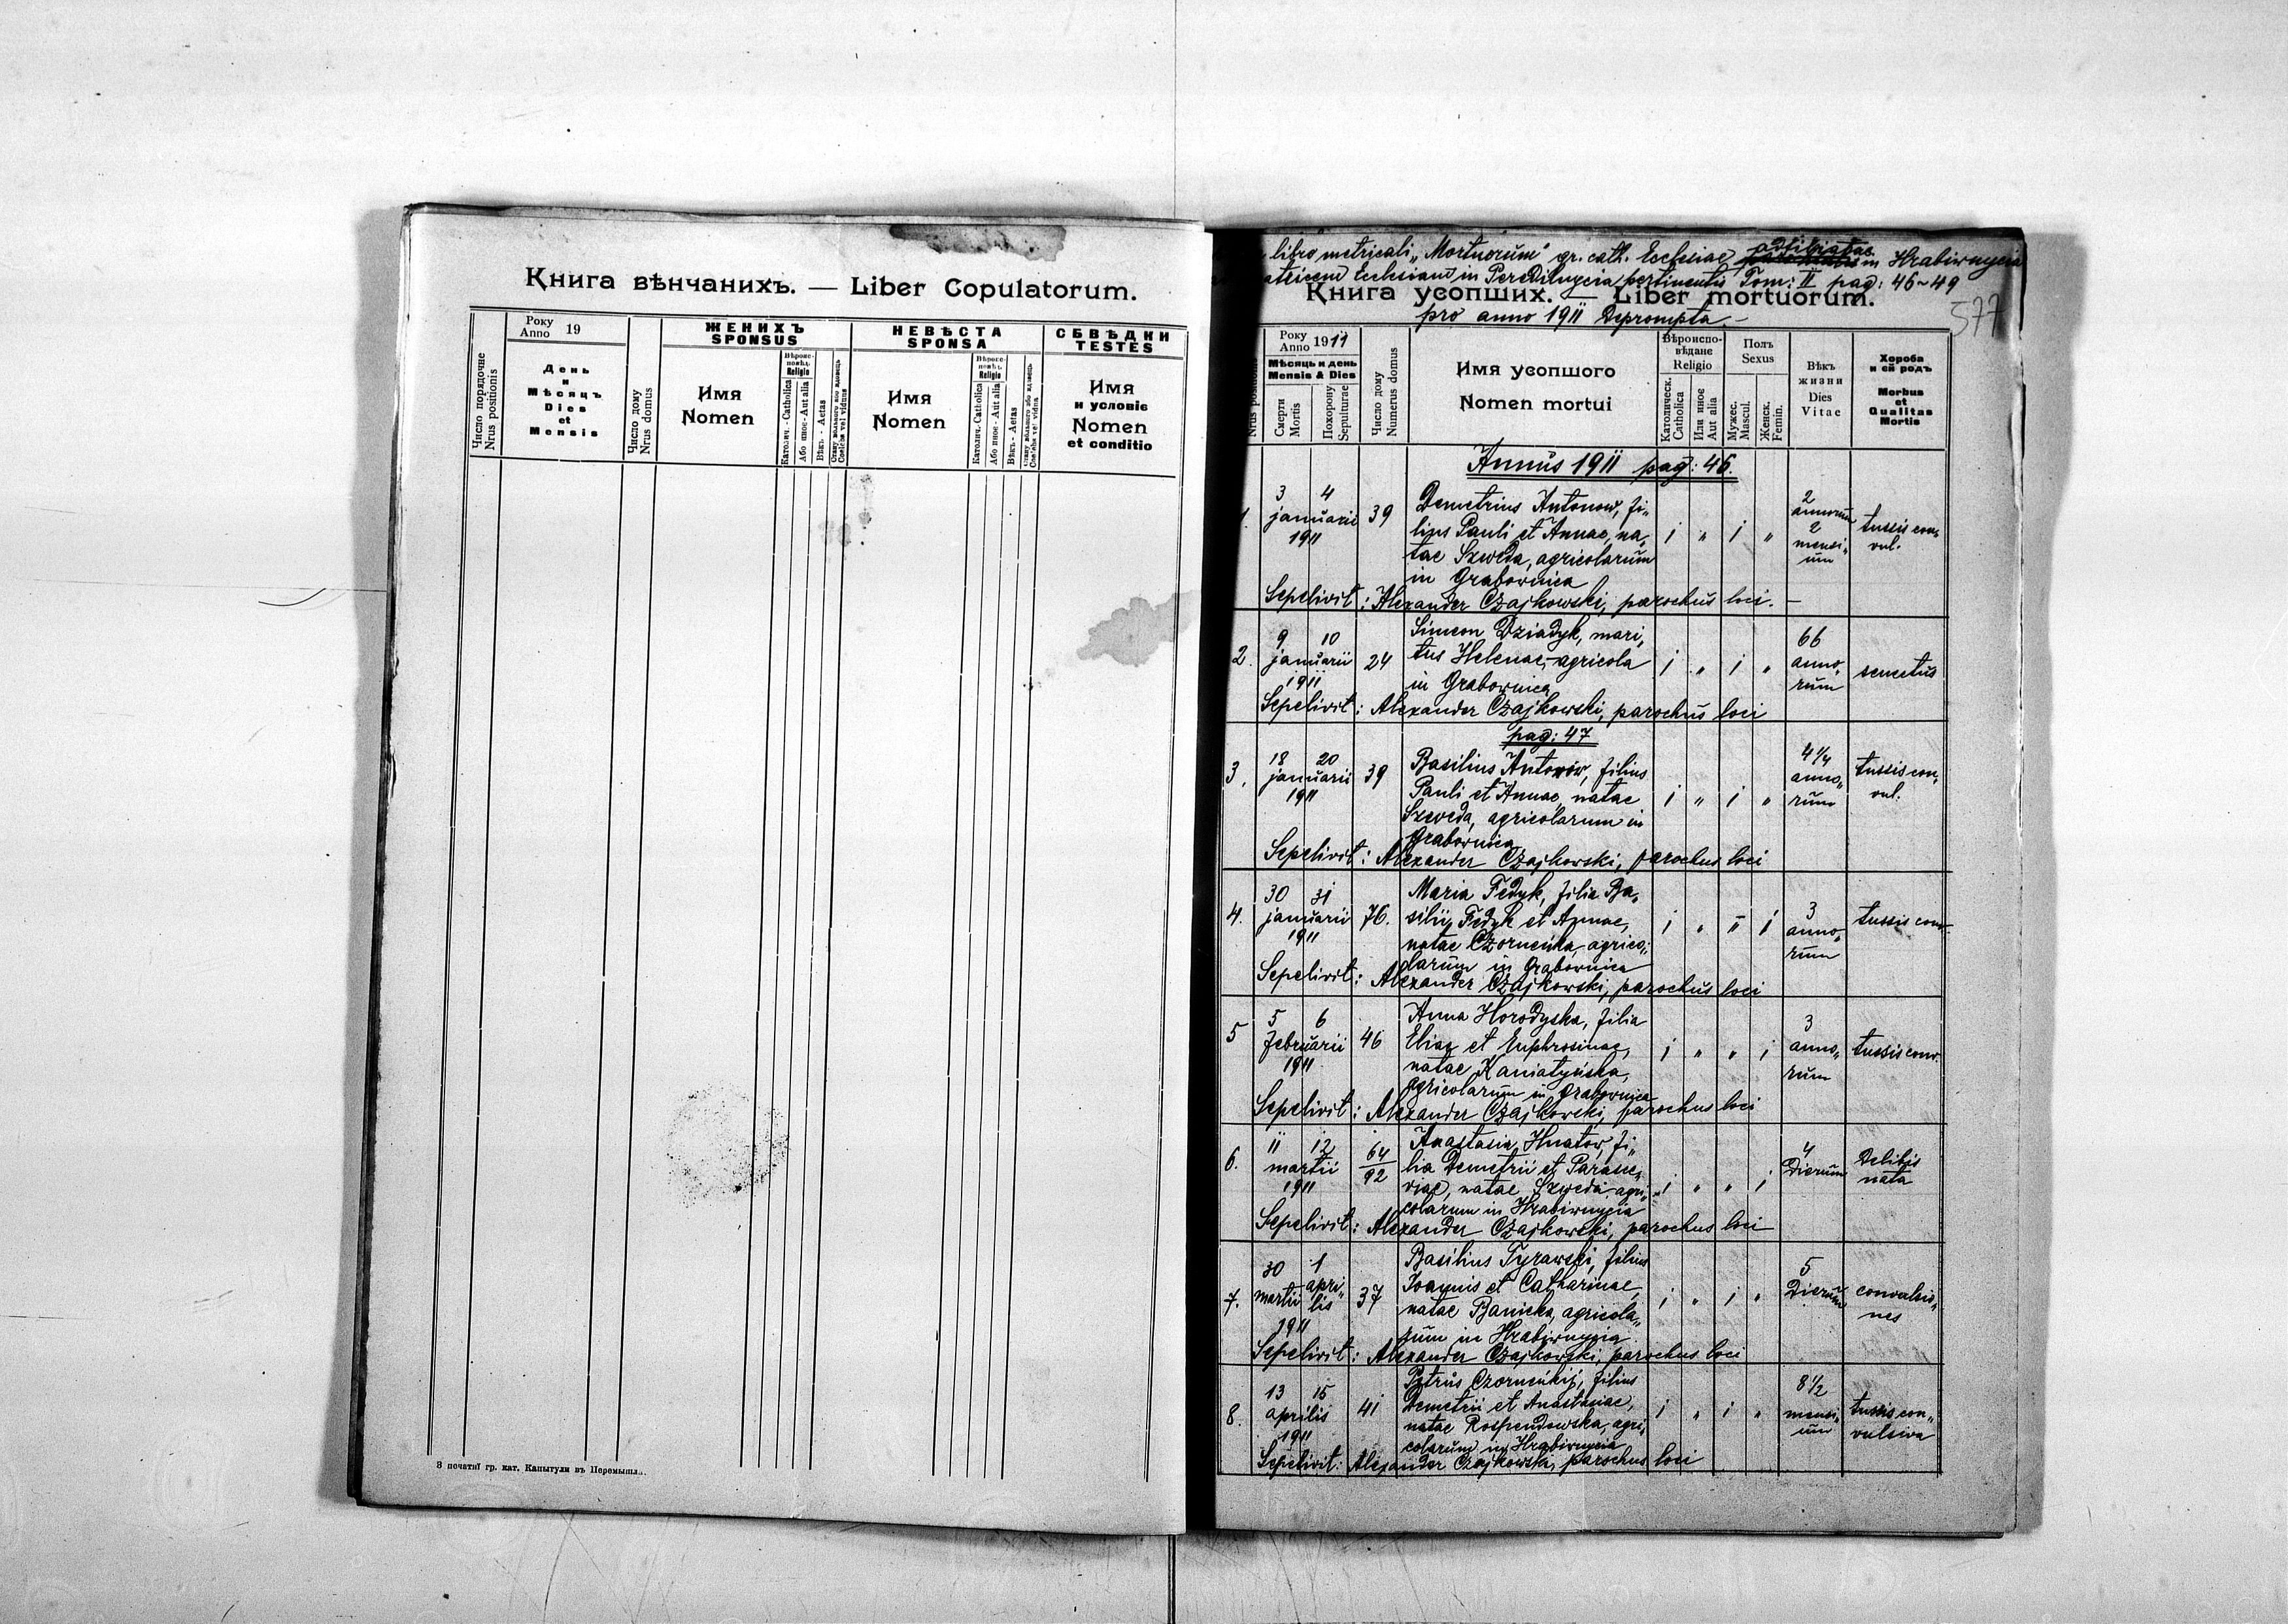 Книга вѣнчанихъ. — Liber Copulatorum.
Число порядочне
Nrus positionis
Року
Anno 19
День
и
Мѣсяцъ
Dies
et
Mensis
Число дому
Nrus domus
ЖЕНИХЪ
SPONSUS
Имя
Nomen
Вѣроис-
повѣд.
Religio
Католич. - Catholica
Або иное - Aut alia
Вѣкъ - Aetas
Coelebs vel viduus
НЕВѢСТА
SPONSA
Имя
Nomen
Вѣроис-
повѣд.
Religio
Католич. Catholica
Або иное - Aut alia
Вѣкъ - Aetas
Coelebs vel vidua
СБВѢДКИ
TESTES
Имя
и условіє
Nomen
et conditio
З печатнї гр. кат. Капытули въ Перемышли.
libro metricali „Mortuorum" gr. cath. Ecclesiae adfiliatae in Hrabiwnycia
matricem Ecclesiam in Peredilnycia pertinentis Tom: II pag: 46-49
Книга усопших. — Liber mortuorum.
pro anno 1911 Deprompta.-
577
Nrus positionis
Року
Anno 1911
Мѣсяць и день
Mensis & Dies
Смерти
Mortis
Похорону
Sepulturae
Число дому
Numerus domus
Имя усопшого
Nomen mortui
Вѣроиспо-
вѣдане
Religio
Католическ.
Catholica
Или иное
Aut alia
Полъ
Sexus
Мужес.
Mascul.
Женск.
Femin.
Вѣкъ
жизни
Dies
Vitae
Хороба
и єй родъ
Morbus
et
Qualitas
Mortis
Annus 1911 pag: 46.
1. 3 4 januarii 1911 39 Demetrius Antonow, fi„
lius Pauli et Annae, na„
tae Szweda, agricolarum
in Grabownica
i „ i „ 2 annorum 2 mensi„ um tussis con„ vul.
Sepelivit: Alexander Czajkowski, parochus loci. —
2. 9 10 januarii 1911 24 Simeon Dziadyk, mari„
tus Helenae, agricola
in Grabownica
i „ i „ 66 anno„ rum senectus
Sepelivit: Alexander Czajkowski, parochus loci
pag: 47
3. 18 20 januarii 1911 39 Basilius Antoniw, filius
Pauli et Annae, natae
Szweda, agricolarum in
Grabownica
i „ i „ 4 1/4 anno„ rum tussis con„ vul.
Sepelivit: Alexander Czajkowski, parochus loci
4. 30 31 januarii 1911 76. Maria Fedyk, filia Ba„
silii Fedyk et Annae,
natae Czorneńka, agrico„
larum in Grabownica
i „ „ i 3 anno„ rum tussis conv.
Sepelivit: Alexander Czajkowski, parochus loci
5 5 6 februarii 1911 46 Anna Horodyska, filia
Eliae et Euphrosinae,
natae Kaniatyńska,
agricolarum in Grabownica
i „ „ i 3 anno„ rum tussis conv.
Sepelivit: Alexander Czajkowski, parochus loci
6. 11 12 martii 1911 64/92 Anastasia Hnatow, fi„
lia Demetrii et Parasce„
viae, natae Szweda agri„
colarum in Hrabiwnycia
i „ „ i 4 Dierum Debilis nata
Sepelivit: Alexander Czajkowski, parochus loci
7. 30 martii 1 apri„ lis 1911 37 Basilius Tyrawski, filius
Joannis et Catharinae,
natae Banicka, agricola„
rum in Hrabiwnycia
i „ i „ 5 Dierum convulsio„ nes
Sepelivit: Alexander Czajkowski, parochus loci
8. 13 15 aprilis 1911 41 Petrus Czorneńkij, filius
Demetrii et Anastasiae,
natae Rospendowska, agri„
colarum in Hrabiwnycia
i „ i „ 8 1/2 mensi„ um tussis con„ vulsiva
Sepelivit: Alexander Czajkowski, parochus loci